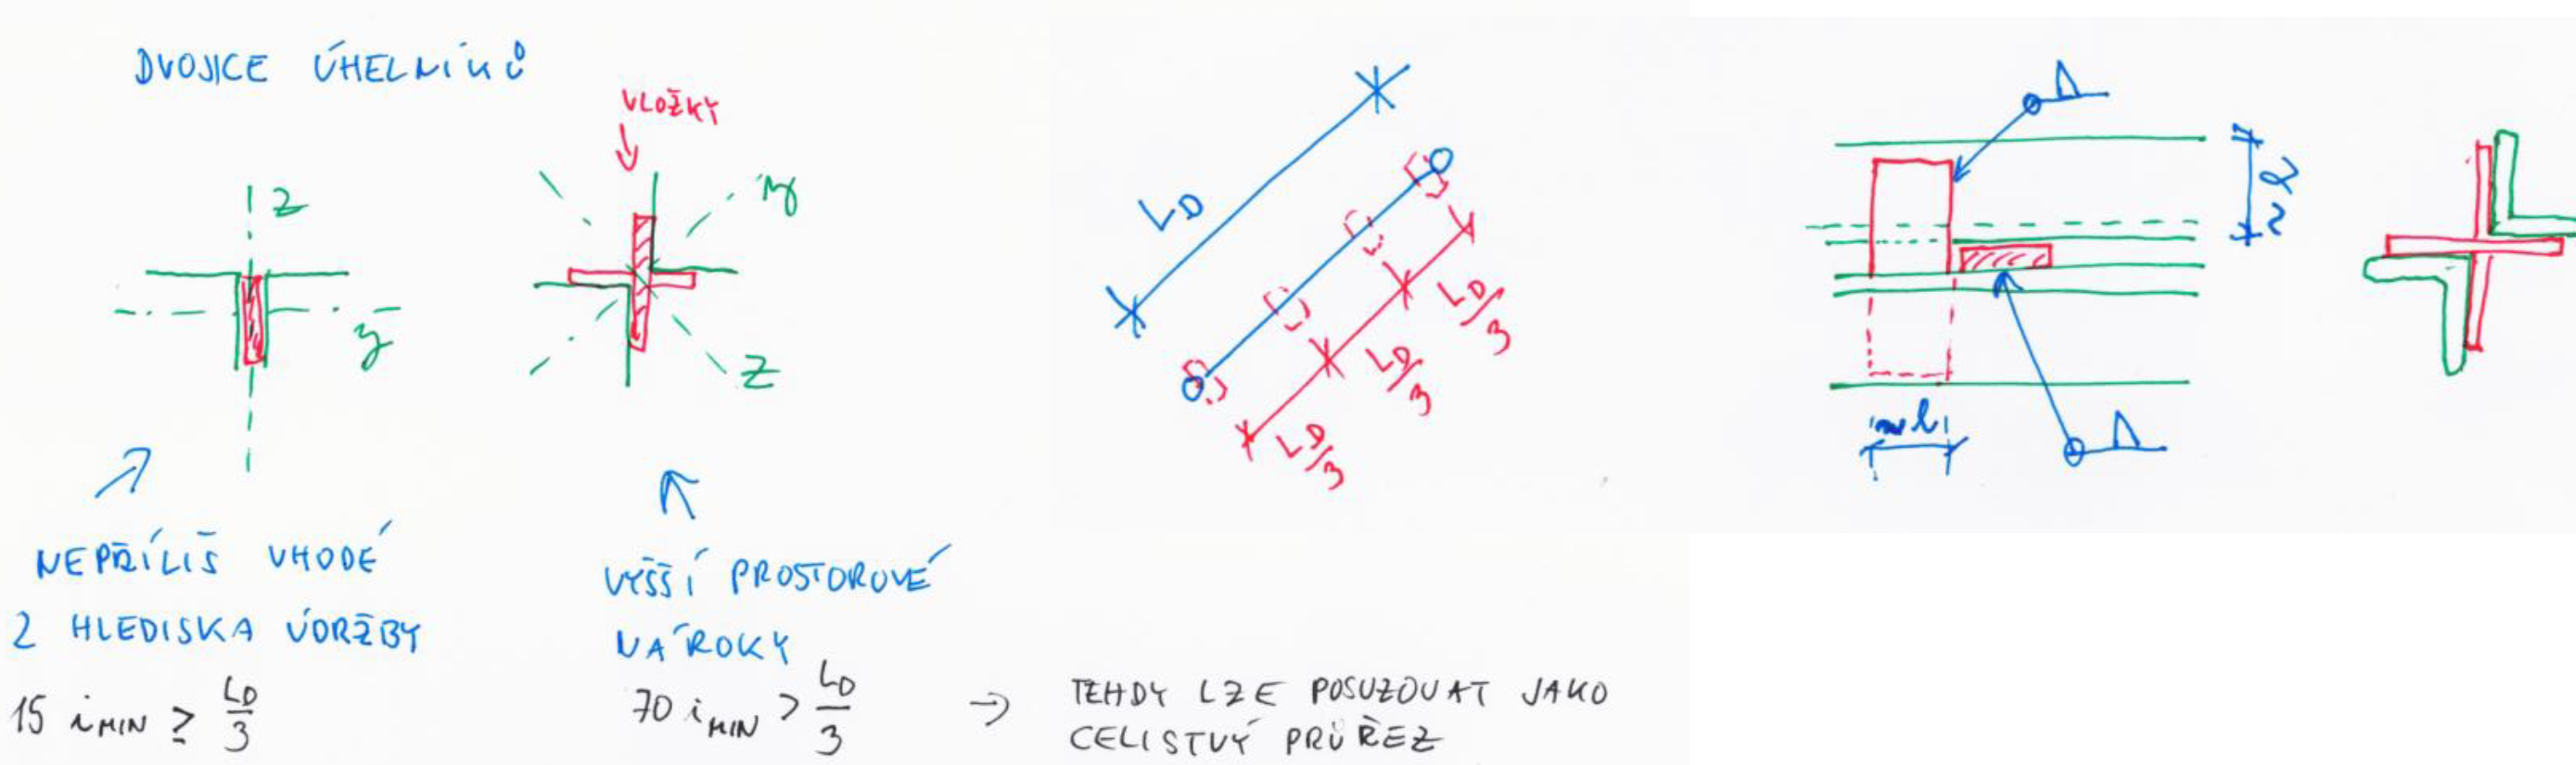 DVOJICE ÚHELNÍKŮ
VLOŽKY
z
y
y
z
NEPŘÍLIŠ VHODÉ
Z HLEDISKA ÚDRŽBY
15 iMIN ≥ LD/3
VYŠŠÍ PROSTOROVÉ
NÁROKY
70 iMIN > LD/3
→ TEHDY LZE POSUZOVAT JAKO
CELISTVÝ PRŮŘEZ
LD
LD/3
LD/3
LD/3